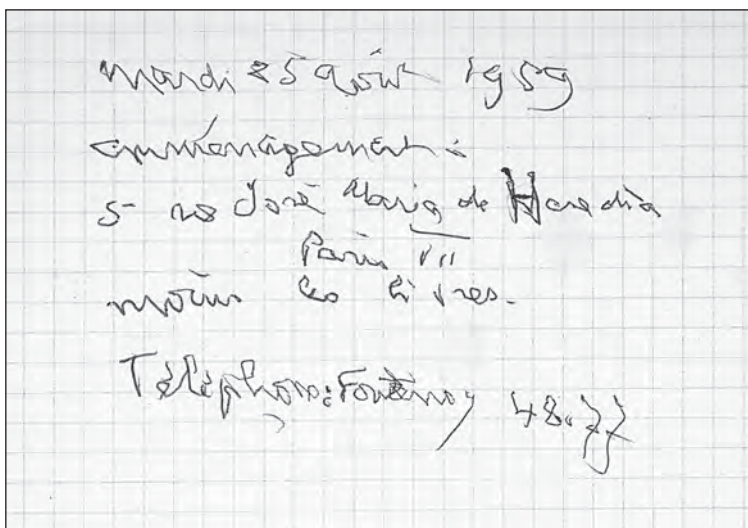 mardi 25 août 1959
emménagement :
5 rue José Maria de Heredia
Paris VII
moins les livres.
Téléphone : Fontenoy 48.77